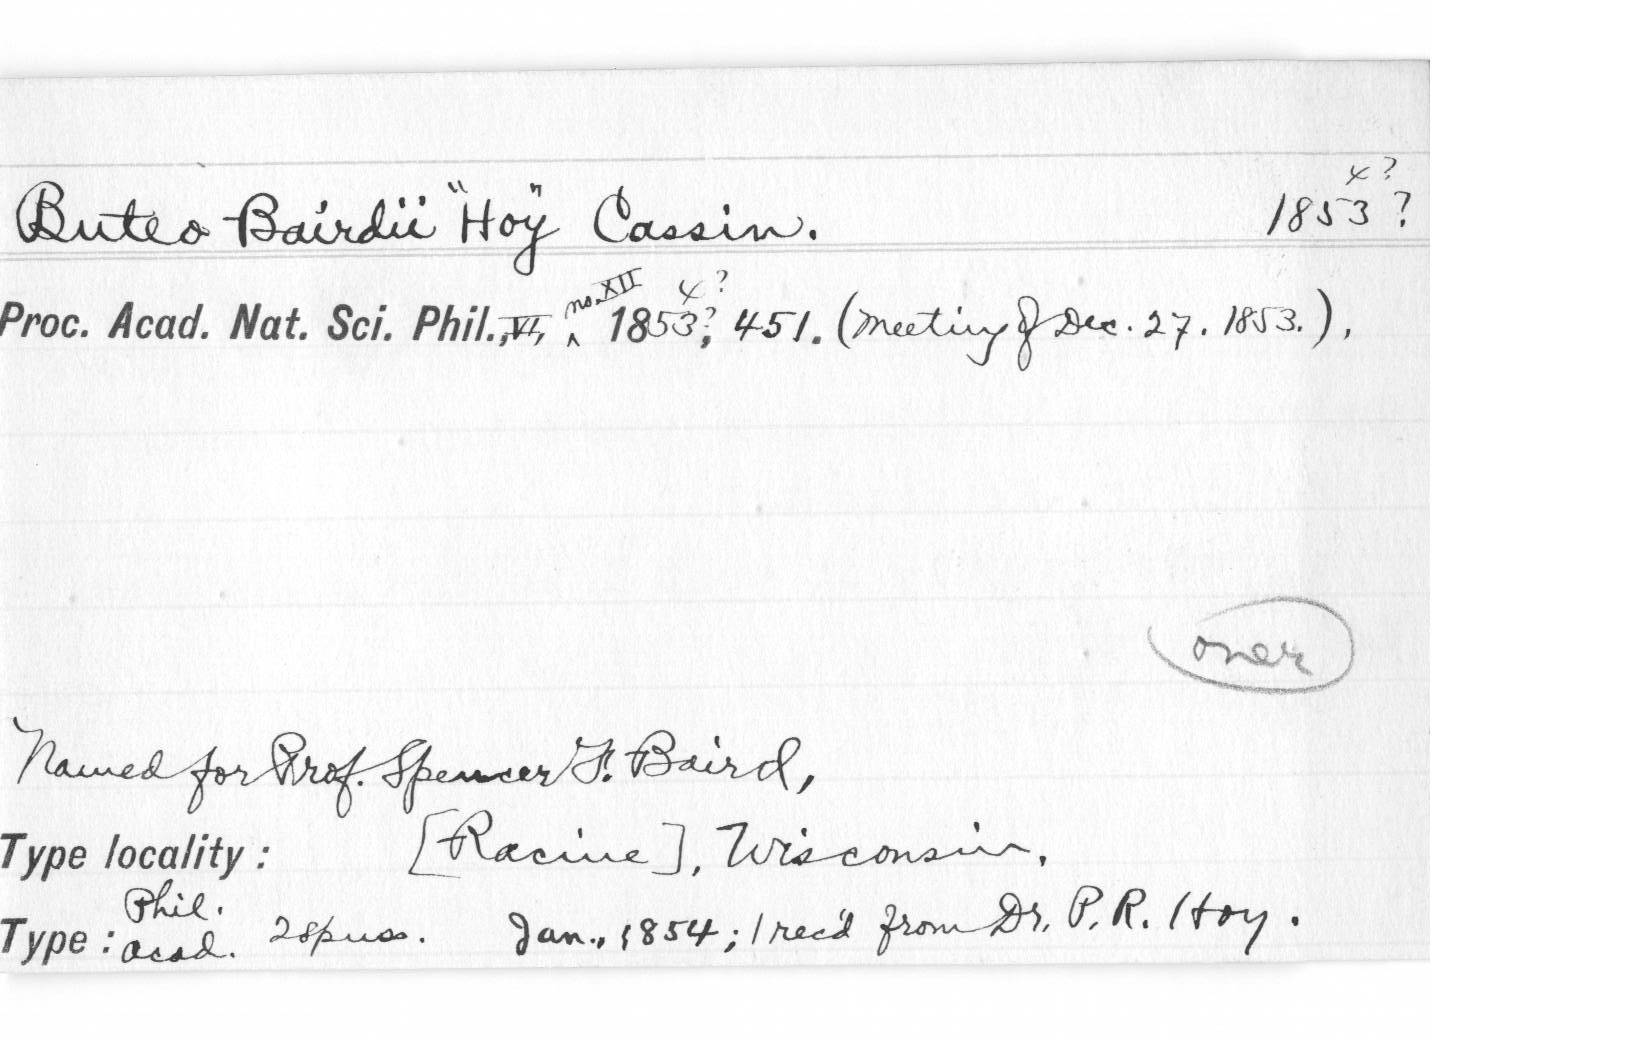 4?
Buteo Bairdii "Hoy" Cassin. 1853?
no. XII 4?
Proc. Acad. Nat. Sci. Phil., VI, ^ 1853?, 451. (Meeting of Dec. 27. 1853.),
over
Named for Prof. Spencer F. Baird,
Type locality: [Racine], Wisconsin.
Phil.
Type: Acad. 2 spms. Jan., 1854; 1 rec'd from Dr. P. R. Hoy.